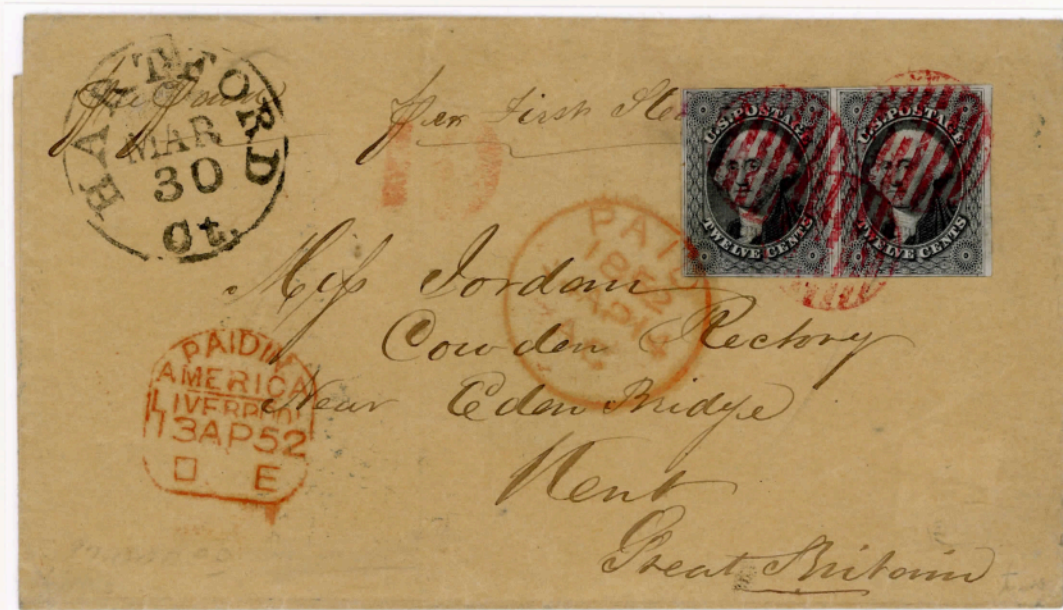 HARTFORD
MAR
30
Ct.
per First
U.S. POSTAGE
TWELVE CENTS
U.S. POSTAGE
TWELVE CENTS
PAID
1852
AP 14
Miss Jordan
Cowden Rectory
Near Eden Bridge
Kent
Great Britain
PAID IN
AMERICA
LIVERPOOL
13AP52
E